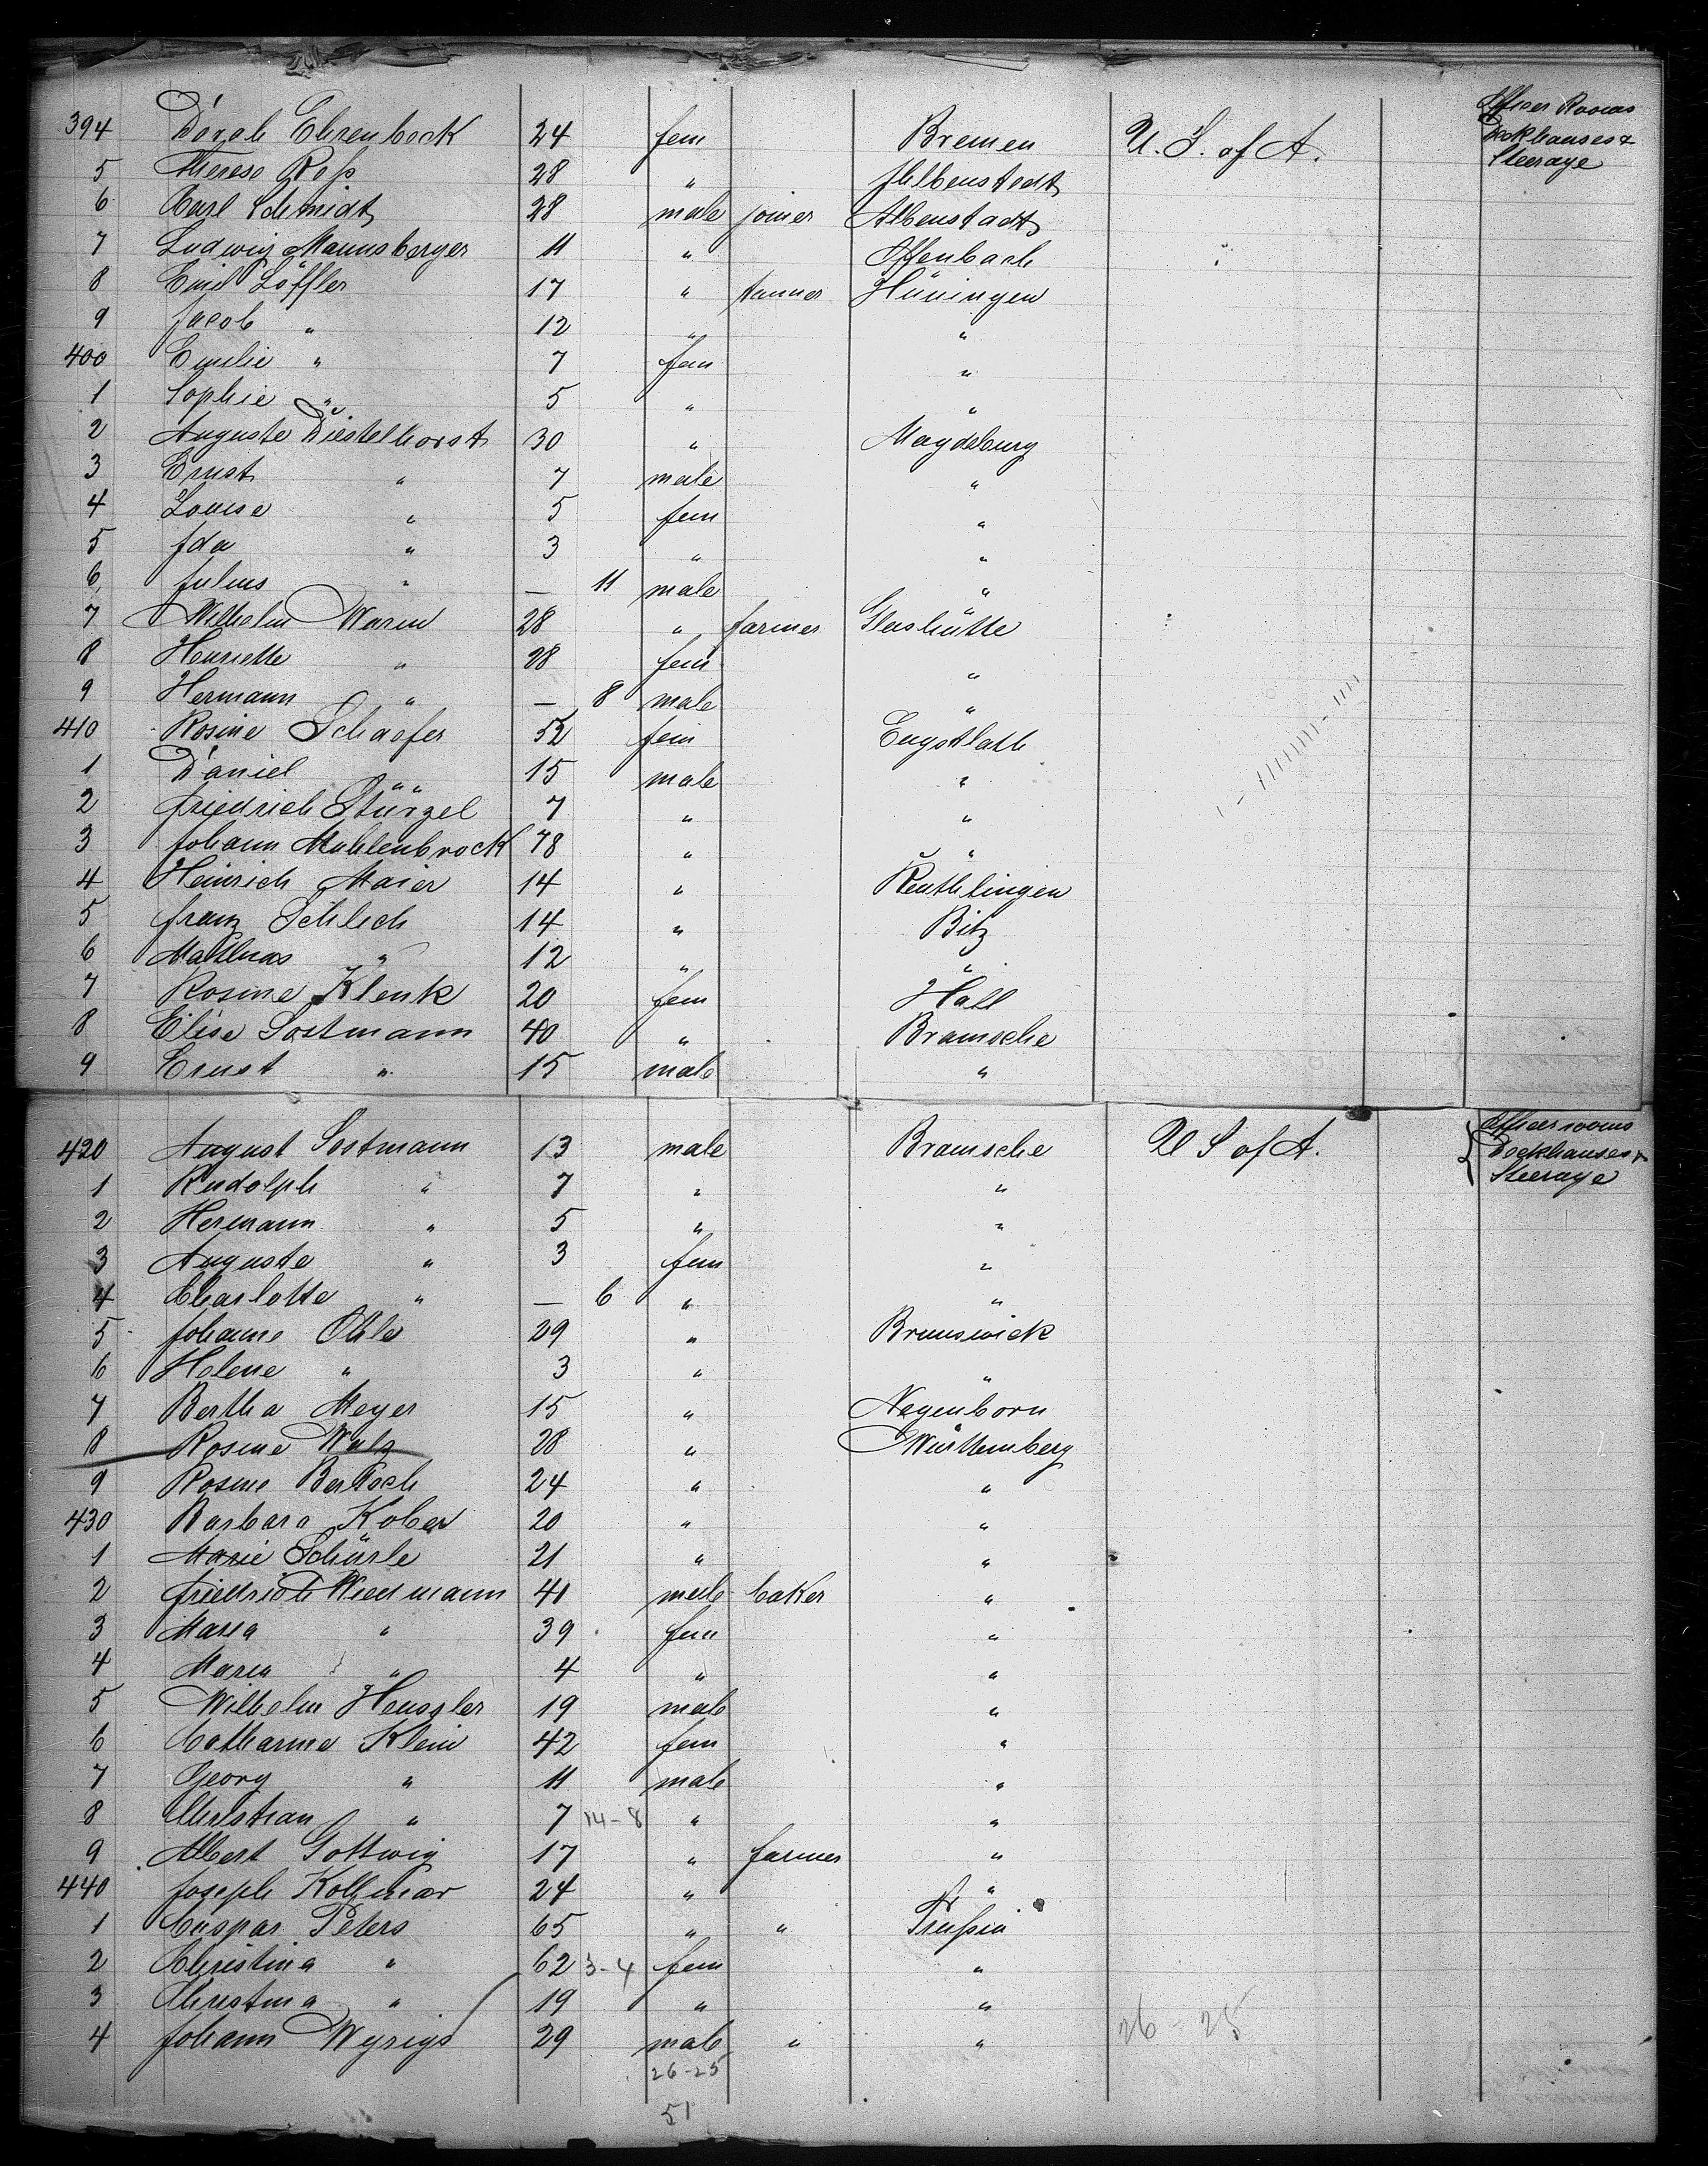 394 Dorah Ehrenbock 24 fem Bremen U. S. of A. Officer Rooms Deckhouses & Steerage
5 Therese Roß 28 " Helbenstedt
6 Carl Schmidt 28 male joiner Albenstadt
7 Ludwig Mannsberger 11 " Offenbach
8 Emil Löffler 17 " tanner Hüningen
9 Jacob " 12 " "
400 Emilie " 7 fem "
1 Sophie " 5 " "
2 Auguste Diestelhorst 30 " Magdeburg
3 Ernst " 7 male "
4 Louise " 5 fem "
5 Ida " 3 " "
6 Julius " — 11 male "
7 Wilhelm Waren 28 " farmer Glashütte
8 Henriette " 28 fem "
9 Hermann " — 8 male "
410 Rosine Schaefer 52 fem Engstlath
1 Daniel " 15 male "
2 Friedrich Stürzel 7 " "
3 Johann Muhlenbrock 78 " "
4 Heinrich Maier 14 " Reuthlingen
5 Franz Schlech 14 " Bitz
6 Mathias " 12 " "
7 Rosine Klenk 20 fem Hall
8 Elise Sostmann 40 " Bramsche
9 Ernst " 15 male "
420 August Sostmann 13 male Bramsche U S of A. Officer rooms Deckhouses & Steerage
1 Rudolph " 7 " "
2 Hermann " 5 " "
3 Auguste " 3 fem "
4 Charlotte " — 6 " "
5 Johanne Ohle 29 " Brunswick
6 Helene " 3 " "
7 Bertha Meyer 15 " Negenborn
8 Rosine Walz 28 " Württemberg
9 Rosine Bertsch 24 " "
430 Barbara Kober 20 " "
1 Marie Schürle 21 " "
2 Friedrich Wiedmann 41 male baker "
3 Maria " 39 fem "
4 Maria " 4 " "
5 Wilhelm Heussler 19 male "
6 Catharine Klein 42 fem "
7 Georg " 11 male "
8 Christian " 7 14-8 " "
9 Albert Gottwig 17 " farmer "
440 Joseph Kollmar 24 " "
1 Caspar Peters 65 " " Prußia
2 Christina " 62 3-4 fem "
3 Christina " 19 " "
4 Johann 29 male " " 26-25
26-25
51